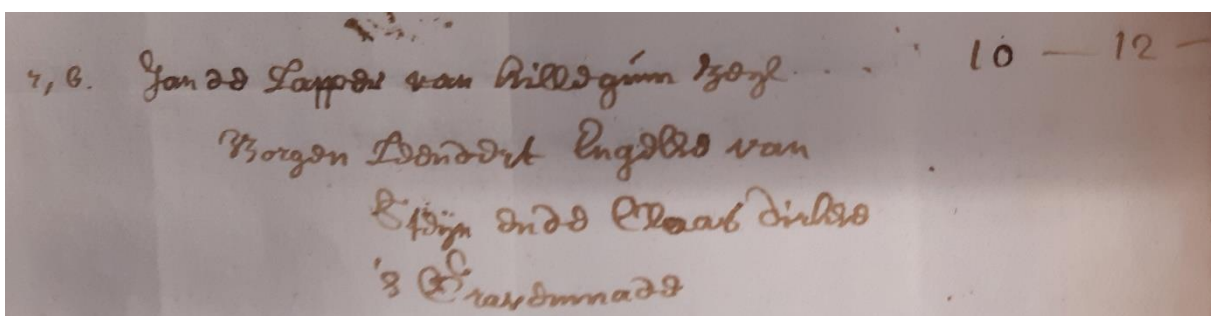 2, 6. Jan de Lapper van Hillegum .... 10 — 12 —
Borgen Leendert Engelse van
Steijn ende Claas dirkse
's Gravenmade